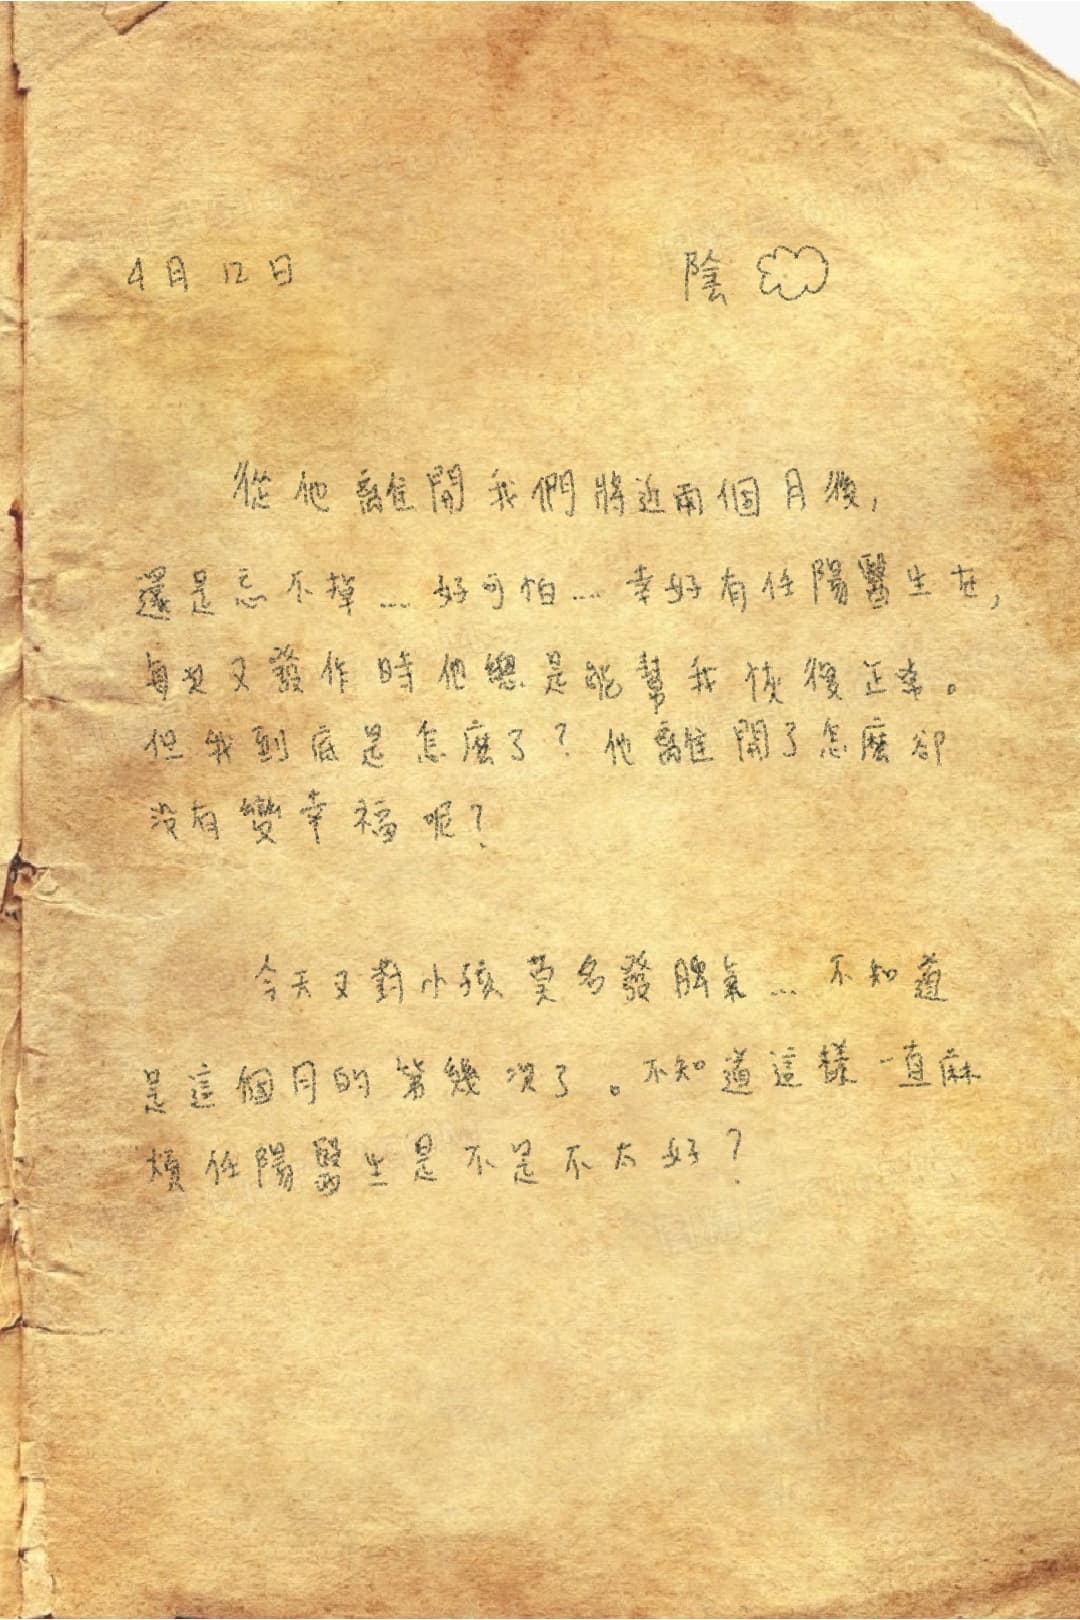 4月12日 陰
從他離開我們將近兩個月後,
還是忘不掉...好可怕...幸好有任陽醫生在,
每次又發作時他總是能幫我恢復正常。
但我到底是怎麼了?他離開了怎麼卻
沒有變幸福呢?
今天又對小孩莫名發脾氣...不知道
是這個月的第幾次了。不知道這樣一直麻
煩任陽醫生是不是不太好?